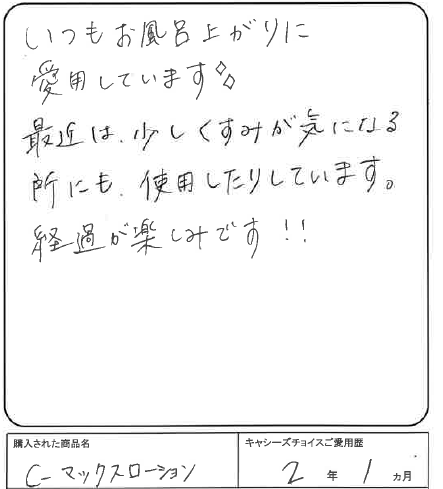 いつもお風呂上がりに
愛用しています
最近は、少しくすみが気になる
所にも、使用したりしています。
経過が楽しみです!!
購入された商品名
C-マックスローション
キャシーズチョイスご愛用歴
2年1ヵ月